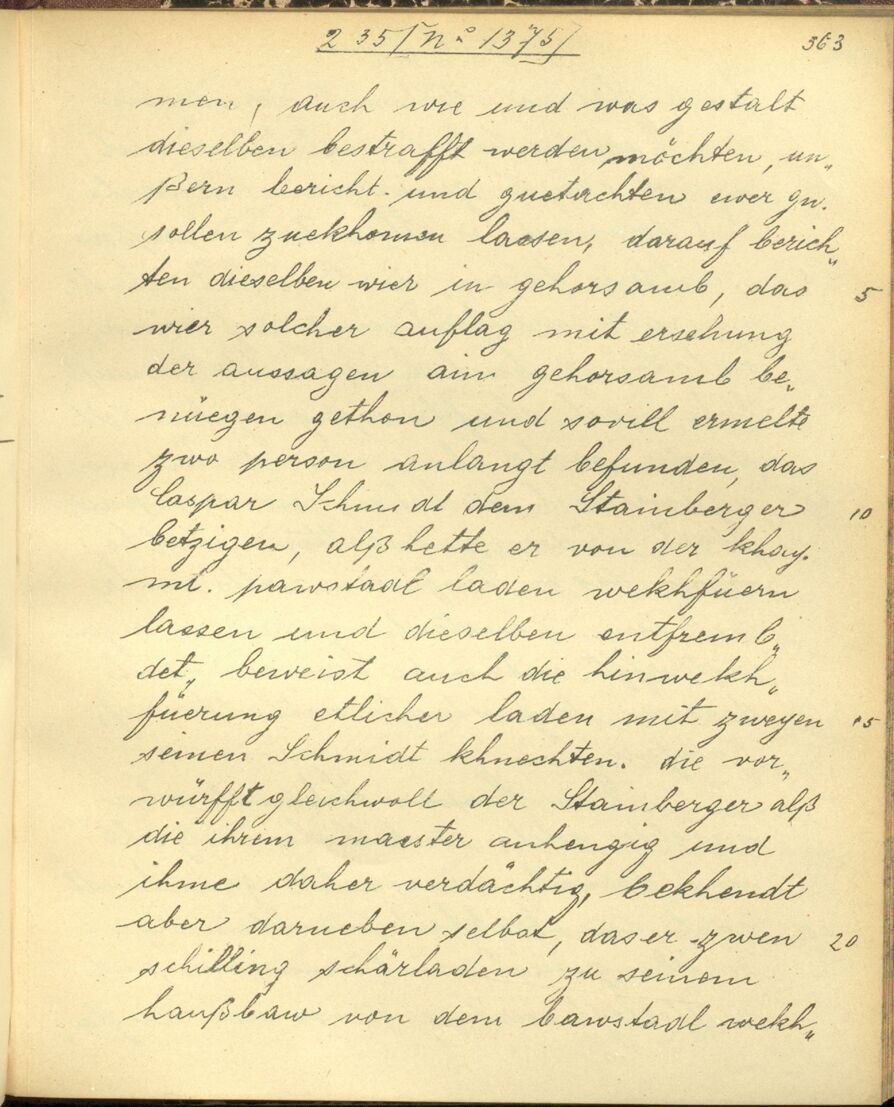 235 [Nº 1375]
363
men, auch wie und was gestalt
dieselben bestrafft werden möchten, un„
ßern bericht und guetachten ewer gn.
sollen zuekhomen lassen, darauf berich„
ten dieselben wier in gehorsamb, das
5
wier solcher auflag mit ersehung
der aussagen ain gehorsamb be„
nüegen gethon und sovill ermelte
zwo person anlangt befunden, das
Caspar Schmidt dem Stainberger
10
betzigen, alß hette er von der khay.
mt. pawstadl laden wekhfüern
lassen und dieselben entfremb„
det„ beweist auch die hinwekh„
füerung etlicher laden mit zweyen
15
seinen Schmidt khnechten. die vor„
würfft gleichwoll der Stainberger alß
die ihrem maister anhengig und
ihme daher verdächtig, bekhendt
aber darneben selbst, das er zwen
20
schilling schärladen zu seinem
haußbaw von dem bawstadl wekh„